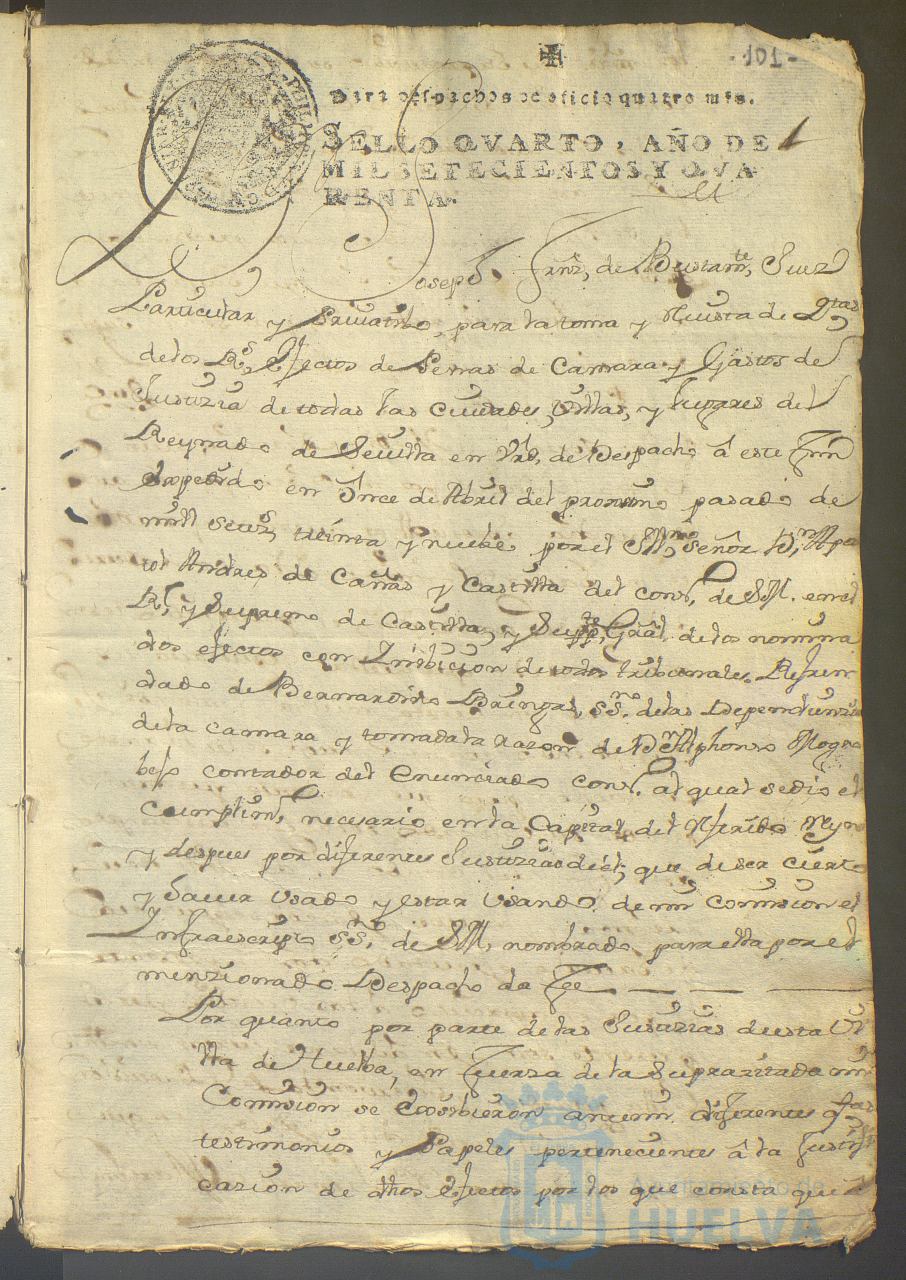 -101-
Para despachos de oficio quatro mrs.
SELLO QVARTO, AÑO DE
MIL SETECIENTOS Y QVA
RENTA.
1
Dn Joseph Frnz, de Bustamte, Juez
Particular y Privativo, para la toma y Reuista de Qtas
de los Rs, Efectos de Penas de Camara y Gastos de
Justizia de todas las Ciudades, Villas, y Lugares del
Reynado de Sevilla en Vrd, de Despacho â este Fin
Expedido en Onze de Abril del proximo pasado de
mill setezs, treinta y nuebe por el Illmo Señor Dn Apa
rol Andres de Cañas y Castilla del Cons, de SM. en el
Rl, y Supremo de Castilla, y Suppte, Gral. de los nomina
dos efectos con Inibicion de todos tribunales. Refren
dado de Bernardino Bringas, ssno. de las Dependenzias
de la Camara y tomada la razon de Dn Alphonso Mogro
bejo contador del enunciado Cons, al qual se dio el
Cumplim, necesario en la Capital del Referido Reyno
y despues por diferentes Justizias de el; que de ser cierto
y hauer Usado y estar Usando de mi Comision el
Infraescripto ssno. de SM, nombrado para ella por el
menzionado Despacho da Fee
Por quanto por parte de las Justizias de esta Vi
lla de Huelba, en Fuerza de la supracitada mi
Comision se Exsibieron ante mi diferentes
testimonios y Papeles pertenecientes â la Justifi
cazion de dhos Efectos por los que consta que
Ayuntamiento de
HUELVA